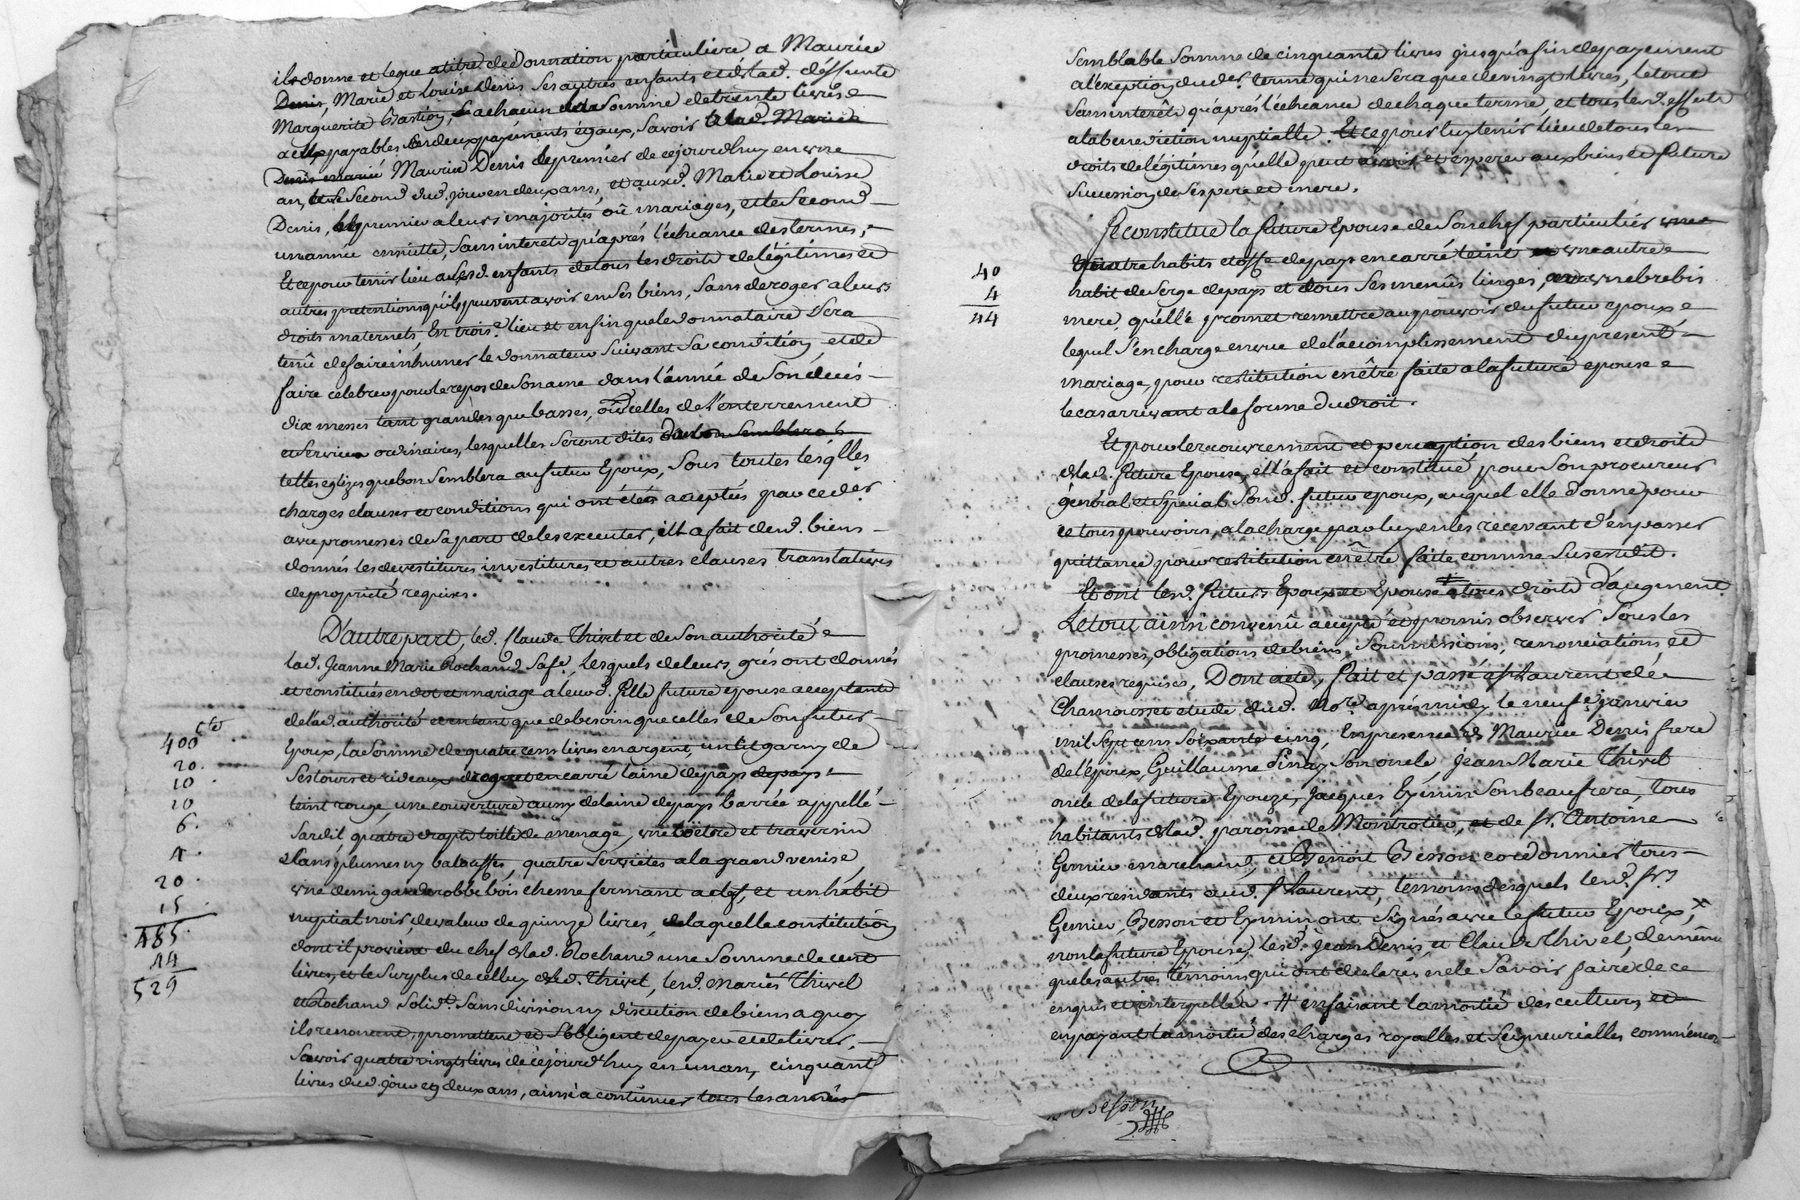 il donne et legue a titre de donnation particuliere a Maurice
Denis, Marie et Louise Denis ses autres enfants et de lad. deffunte
Marguerite Bastion, a chacun la somme de trente livres
a eux payables en deux payements égaux, savoir a lad. Marie
Denis marié Maurice Denis le premier de ce jourd'huy en une
an, et le second dud. jour en deux ans, et auxd. Marie et Louise
Denis, le premier a leurs majorités ou mariages, et le second
une année ensuitte, sans interets qu'aprés l'écheance des termes,
Et ce pour tenir lieu a sesd. enfants de tous les droits de légitimes et
autres pretentions qu'ils peuvent avoir en ses biens, sans deroger a leurs
droits maternels, En trois.e lieu et enfin que le donnataire sera
tenû de faire inhumer le donnateur suivant sa condition et de
faire célebrer pour le repos de son ame dans l'année de son décés
dix messes tant grandes que basses, outre celles de l'enterrement
et service ordinaires, lesquelles seront dites ou bon semblera
telles eglizes que bon semblera au futur Epoux, Sous toutes lesqlles
charges clauses et conditions qui ont étés acceptées par ce der.
avec promesses de sa part de les executer, il a fait desd. biens
donnés les devestitures investitures et autres clauses translatives
de propriété requises.
D'autre part, led. Claude Thivel et de son authorité
lad. Jeanne Marie Rochand sa fe. lesquels de leurs grés ont donnés
et constitués en dot et mariage a leurd. fille future epouse acceptante
de lad. authorité et entant que de besoin que celles de son futur
Epoux, la somme de quatre cens livres en argent, un lit garny de
ses tours et rideaux droguet en carré laine de pays de pays
teint rouge, une couverture aussy de laine de pays barrée appellé
sardil quatre draps toille de menage, une coëtre et traversin
sans plumes ny balouffes, quatre serviettes a la grand venise,
une demi garderobbe bois chesne fermant a clef, et un habit
nuptial noir, de valeur de quinze livres, de laquelle constitution
dont il provient du chef de lad. Rochand une somme de cent
livres, et le surplus de celluy dud. Thivel, lesd. mariés Thivel
et Rochand solid.t sans division ny discution de biens a quoy
ils renoncent, promettent et s'obligent de payer et delivrer,
Savoir quatre vingts livres de ce jourd'huy en un an, cinquant
livres dud. jour en deux ans, ainsi a continuer tous les années
400 cte
20.
10.
10
6.
4.
20.
15.
485.
44
529
semblable somme de cinquante livres jusqu'a fin de payement
a l'exeption du der. terme qui ne sera que de vingt livres, le tout
sans interêts qu'aprés l'écheance de chaque terme, et tous lesd. effets
a la benediction nuptialle. Et ce pour luy tenir lieu de tous les
droits de légitimes qu'elle peut avoir et esperer aux biens et future
sucession de ses pere et mere.
Se constitue la future Epouse de son chef particulier une
quatre habits etoffe de pays en carré teint une autre
habit de serge de pays et tous ses menûs linges, une brebis
mere, qu'elle promet remettre au pouvoir du futur epoux
lequel s'en charge en vue de l'accomplissement du present
mariage, pour restitution en être faite a la future epouse
le cas arrivant a la forme du droit.
40
4
44
Et pour le recouvrement et perception des biens et droits
de lad. future Epouse, ell' a fait et constitué pour son procureur
général et special sond. futur epoux, auquel elle donne pour
ce tous pouvoirs, a la charge par luy en les recevant d'en passer
quittance pour restitution en être faite comme susest dit.
Et ont lesd. futurs Epoux et Epouse a tous droits d'augment
Le tout ainsi convenû accepté et promis observer sous les
promesses, obligations de biens, soumissions, renonciations et
clauses requises, Dont acte, fait et passé a St Laurent de
Chamousset etude dud. Nore. aprés midy le neuf.e janvier
mil sept cens soixante cinq, En presence de Maurice Denis frere
de l'époux, Guillaume Pinay son oncle, Jean Marie Thivel
oncle de la future Epouze, Jacques Epinin son beaufrere, tous
habitants de lad. paroisse de Montrotier, et de Sr. Antoine
Gemier marchand, et Benoit Besson cordonnier tous
deux residants aud. St Laurent, temoins desquels lesd. Srs
Gemier, Besson et Epinin, ont signés avec le futur Epoux,
non la future Epouse, lesd. Jean Denis, et Claude Thivel, de même
que les autres temoins qui ont declarés ne le savoir faire de ce
enquis et interpellés. # en faisant la moitié des cultures et
en payant la moitié des charges royalles et seigneurialles commencer
Besson